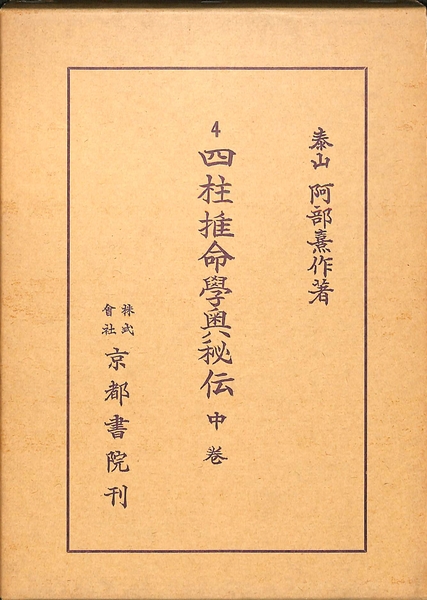 泰山 阿部熹作著
4 四柱推命學奥秘伝 中巻
株式會社 京都書院刊